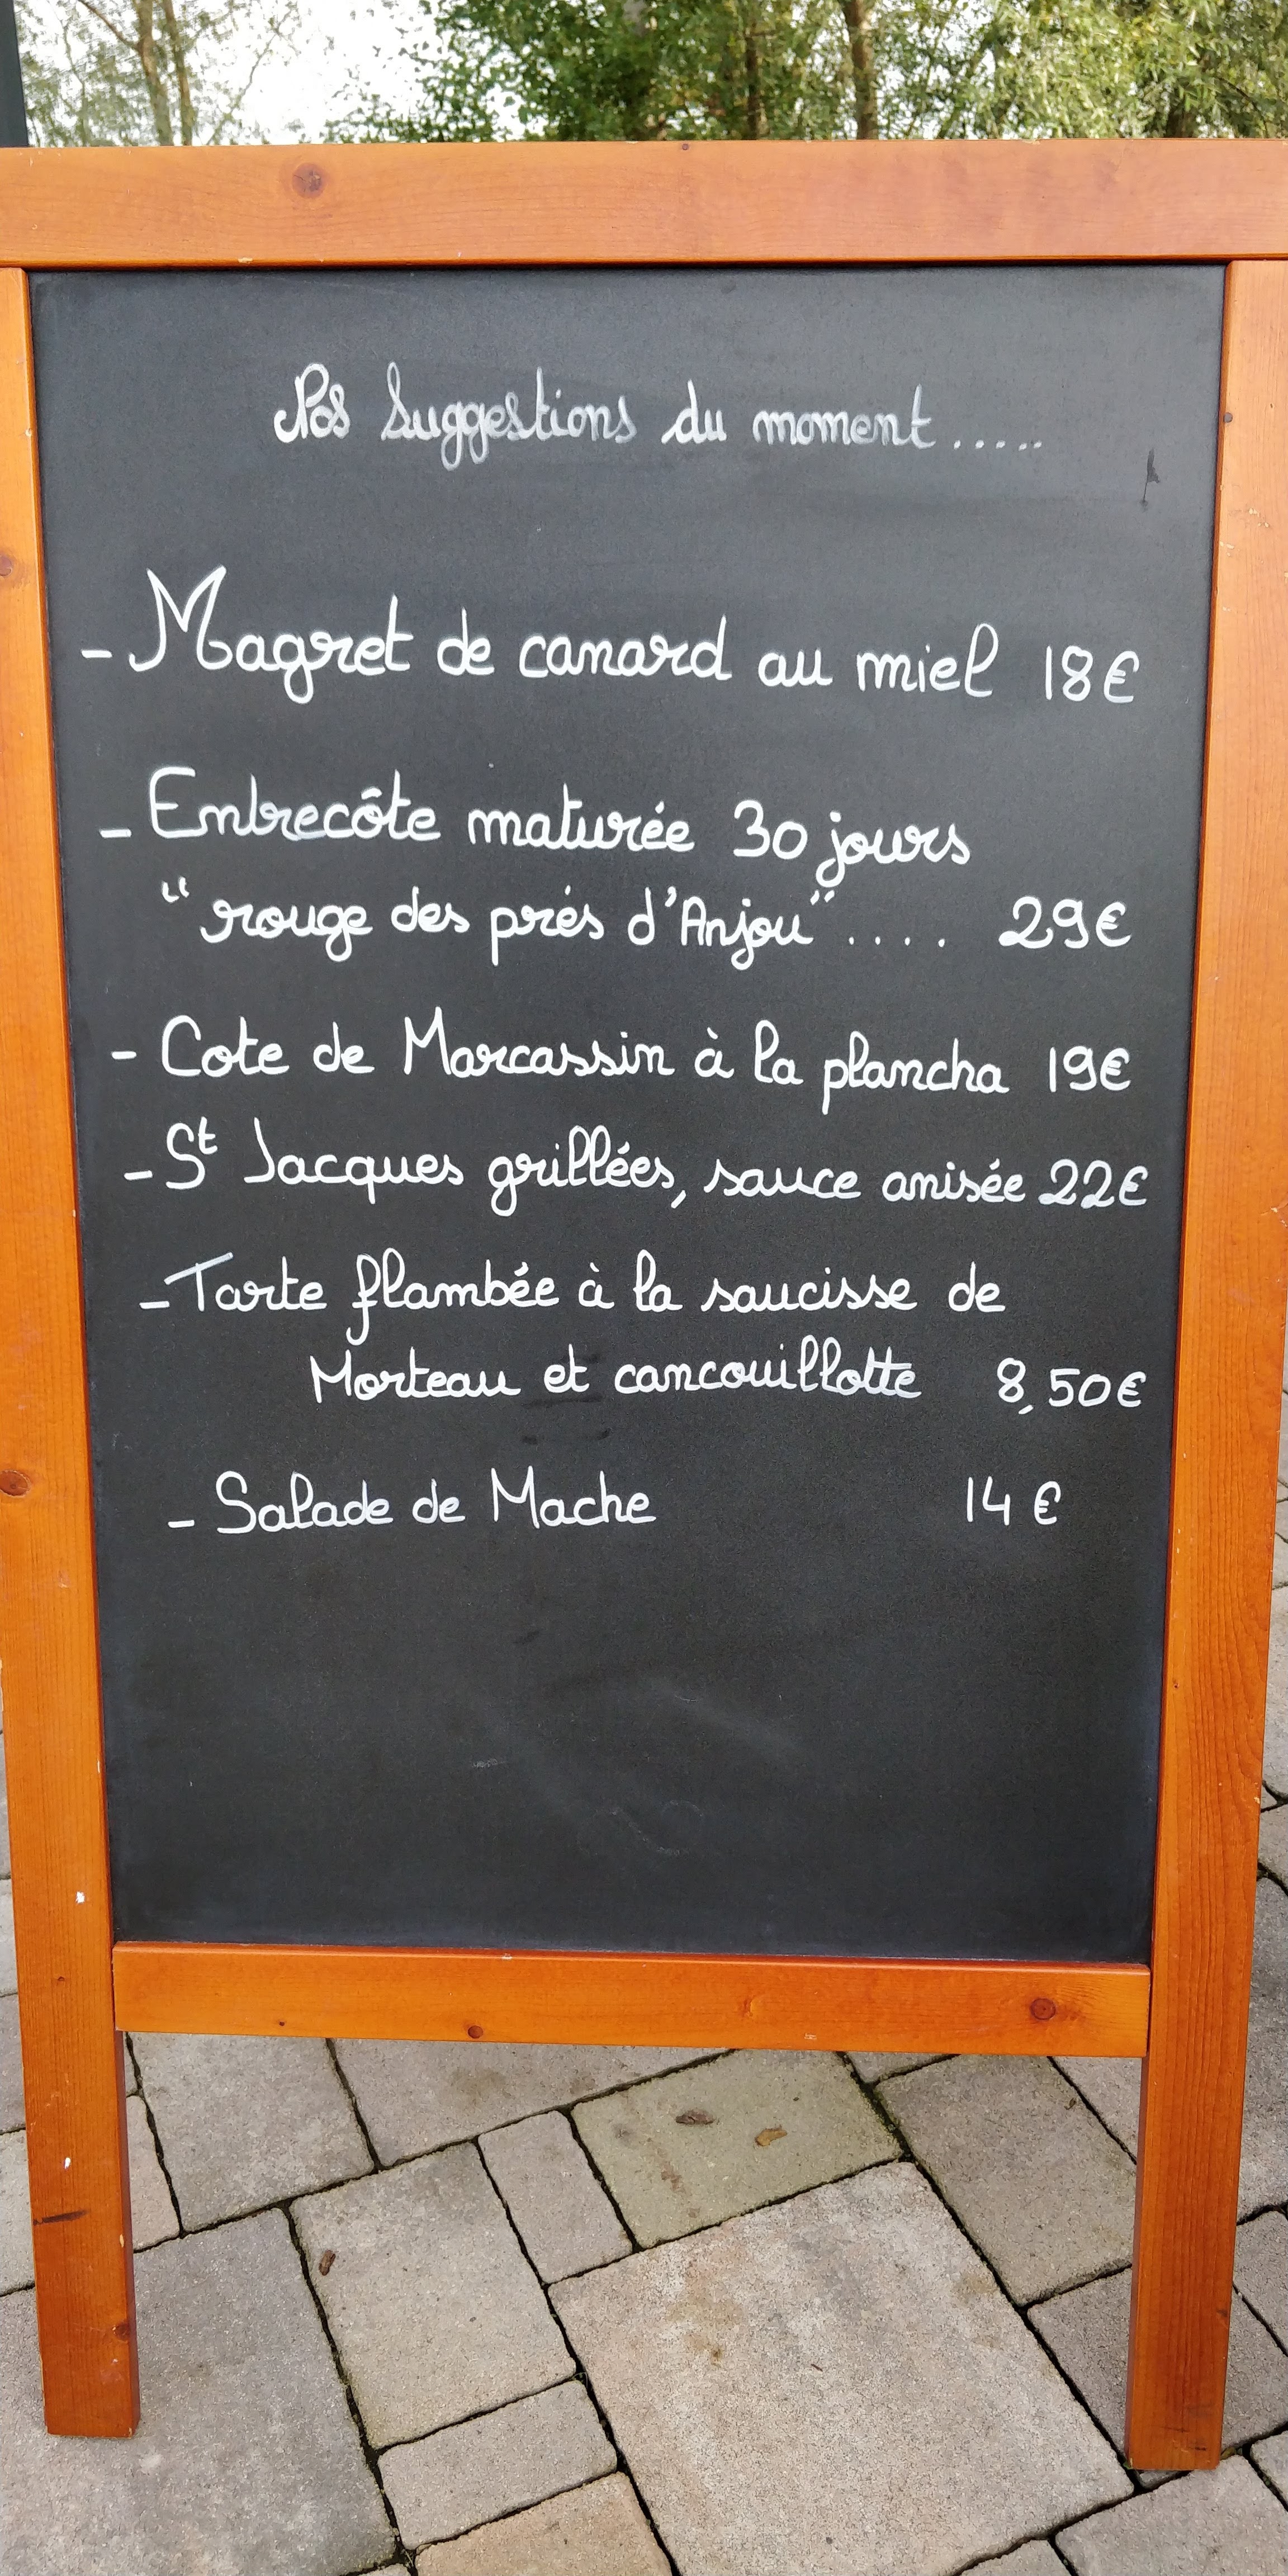 Nos Suggestions du moment.....
- Magret de canard au miel 18€
- Entrecôte maturée 30 jours
"rouge des prés d'Anjou".... 29€
- Cote de Marcassin à la plancha 19€
- St Jacques grillées, sauce anisée 22€
- Tarte flambée à la saucisse de
Morteau et cancouillotte 8,50€
- Salade de Mache 14€